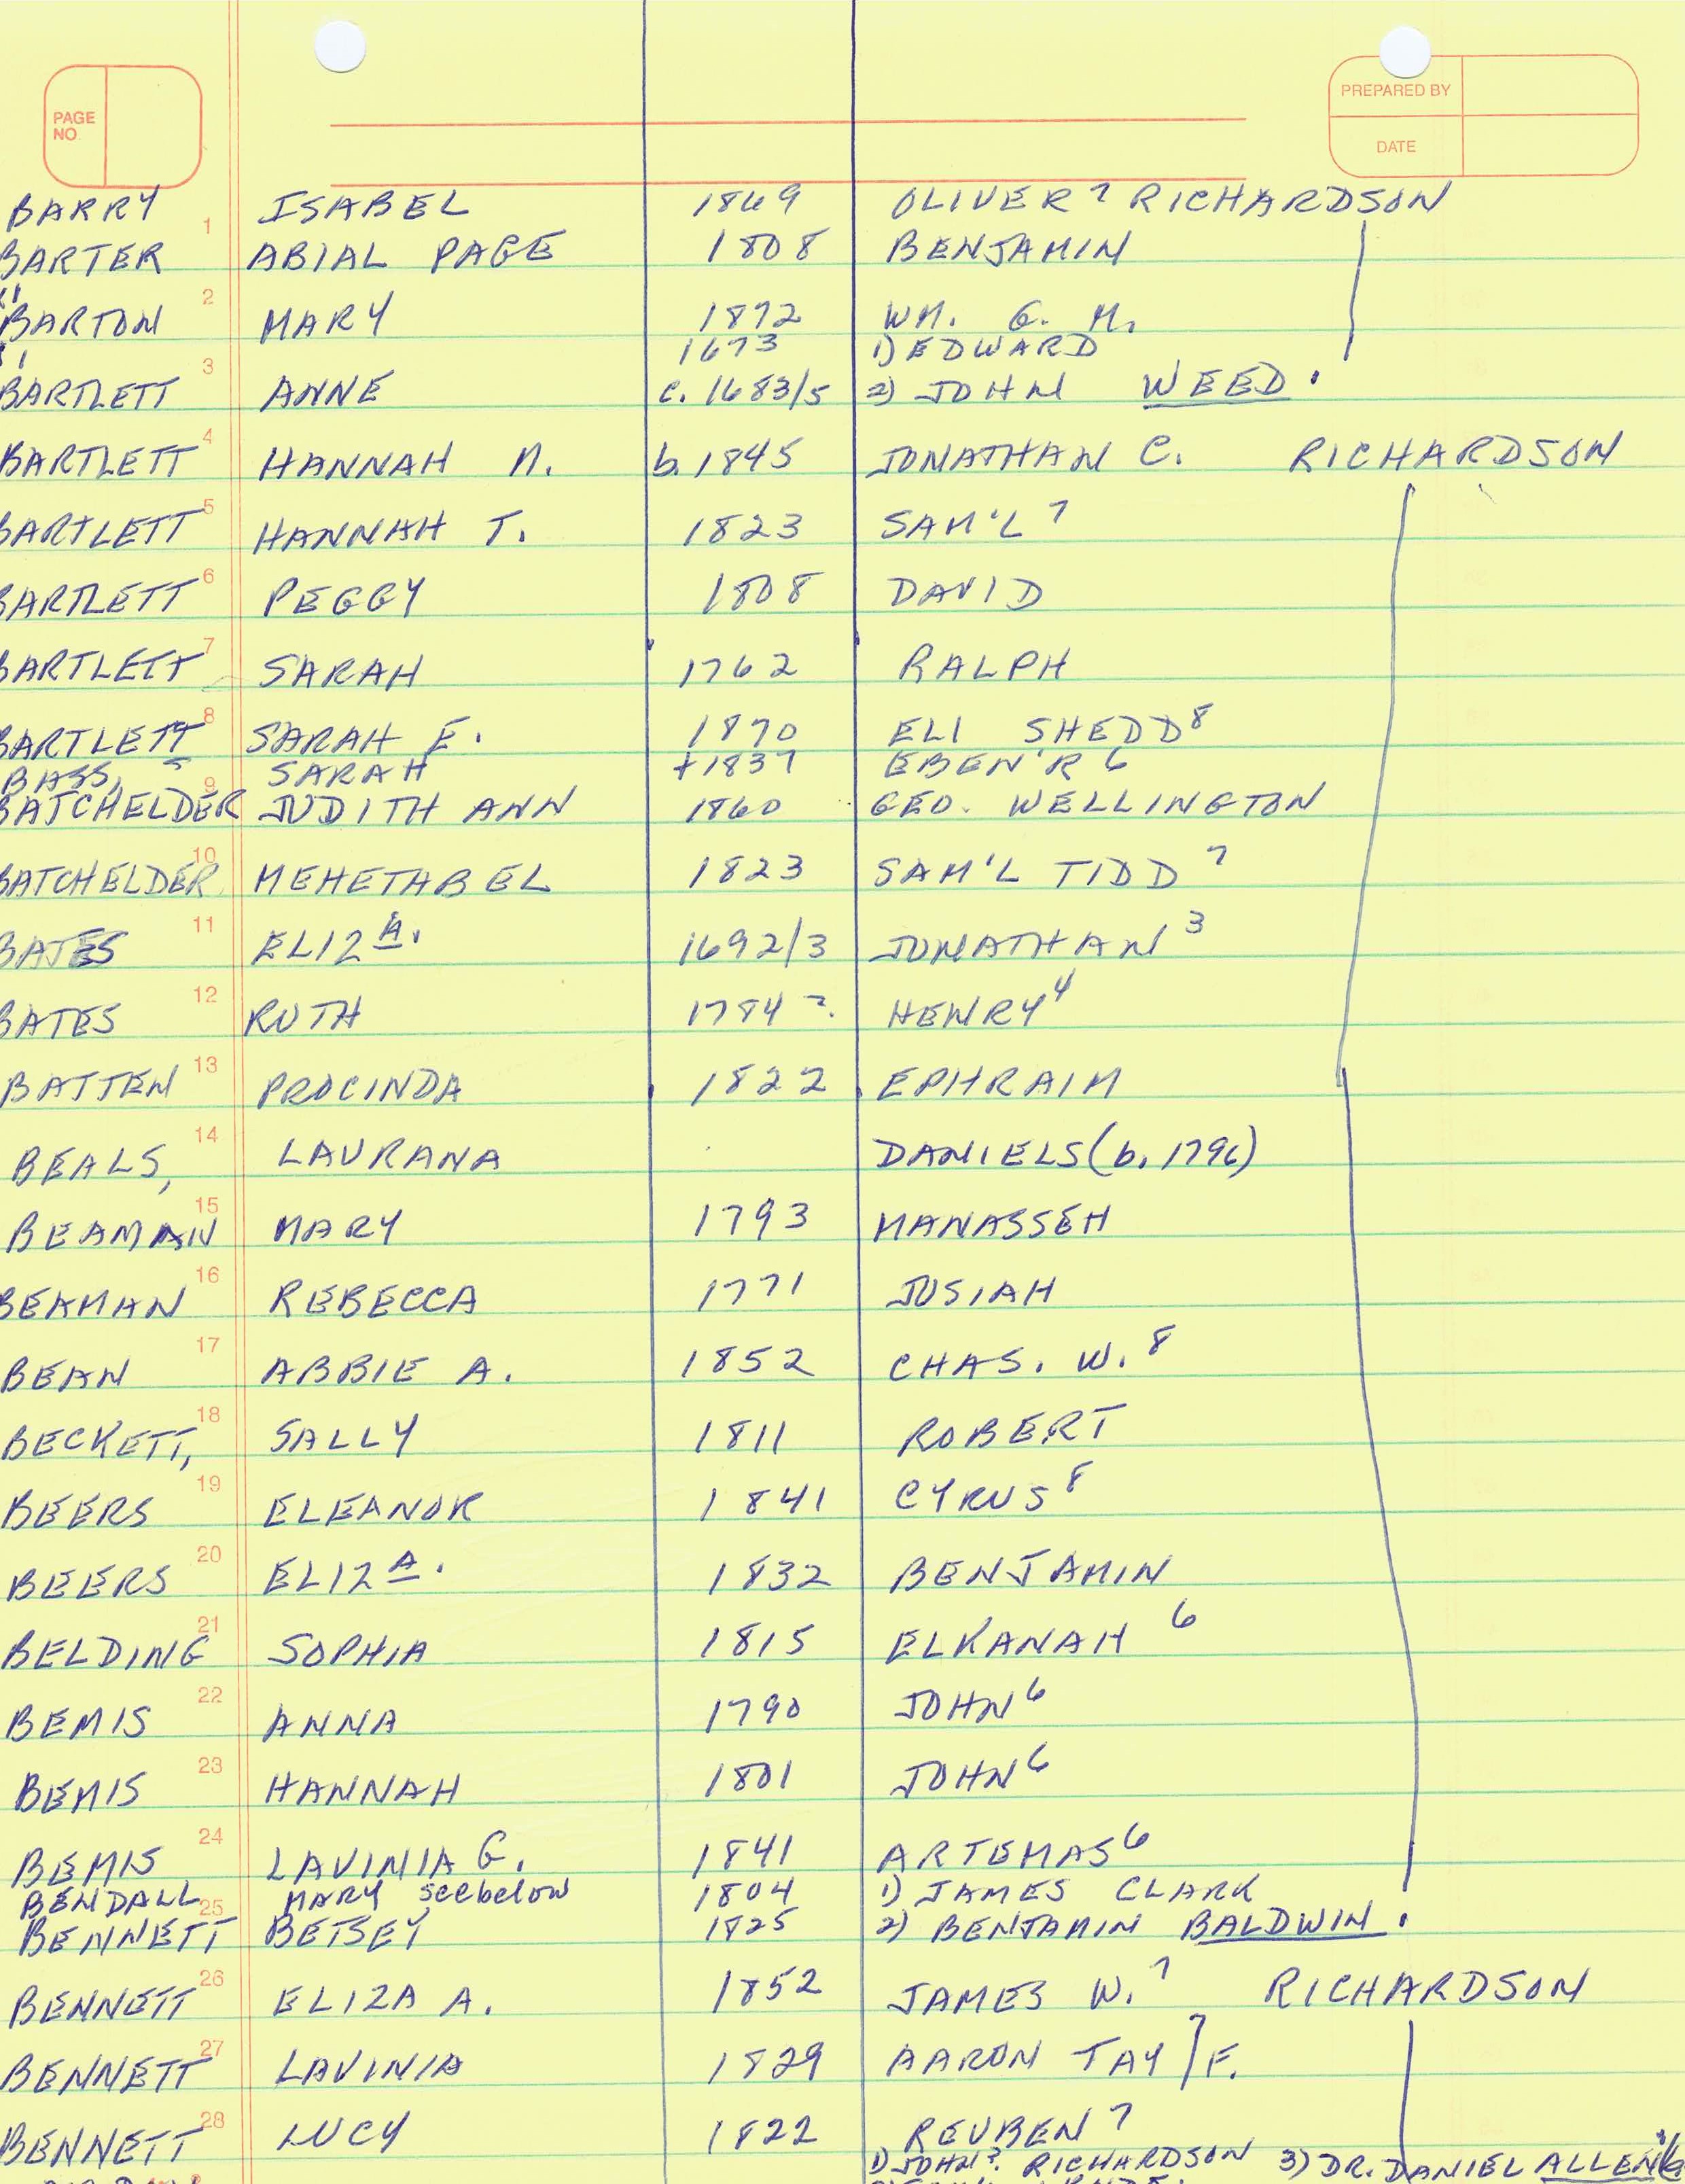 PAGE NO.
PREPARED BY
DATE
BARRY ISABEL 1869 OLIVER 7 RICHARDSON
1
BARTER ABIAL PAGE 1808 BENJAMIN
2
BARTON MARY 1872 WM. G. M.
1673 1) EDWARD
3
BARTLETT ANNE c. 1683/5 2) JOHN WEED.
4
BARTLETT HANNAH N. b. 1845 JONATHAN C. RICHARDSON
5
BARTLETT HANNAH T. 1823 SAM'L 7
6
BARTLETT PEGGY 1808 DAVID
7
BARTLETT SARAH 1762 RALPH
8
BARTLETT SARAH E. 1870 ELI SHEDD 8
BASS, SARAH +1837 EBEN'R 6
9
BATCHELDER JUDITH ANN 1860 GEO. WELLINGTON
10
BATCHELDER MEHETABEL 1823 SAM'L TIDD 7
11
BATES ELIZA. 1692/3 JONATHAN 3
12
BATES RUTH 1784 ?. HENRY 4
13
BATTEN PROCINDA 1822 EPHRAIM
14
BEALS, LAURANA DANIELS (b. 1796)
15
BEAMAN MARY 1793 MANASSEH
16
BEAMAN REBECCA 1771 JOSIAH
17
BEAN ABBIE A. 1852 CHAS. W. 8
18
BECKETT, SALLY 1811 ROBERT
19
BEERS ELEANOR 1841 CYRUS 8
20
BEERS ELIZA. 1832 BENJAMIN
21
BELDING SOPHIA 1815 ELKANAH 6
22
BEMIS ANNA 1790 JOHN 6
23
BEMIS HANNAH 1801 JOHN 6
24
BEMIS LAVINIA G. 1841 ARTEMAS 6
BENDALL MARY see below 1804 1) JAMES CLARK
25
BENNETT BETSEY 1825 2) BENJAMIN BALDWIN.
26
BENNETT ELIZA A. 1852 JAMES W. 7 RICHARDSON
27
BENNETT LAVINIA 1829 AARON TAY 7/F.
28
BENNETT LUCY 1822 REUBEN 7
1) JOHN 3. RICHARDSON 3) DR. DANIEL ALLEN